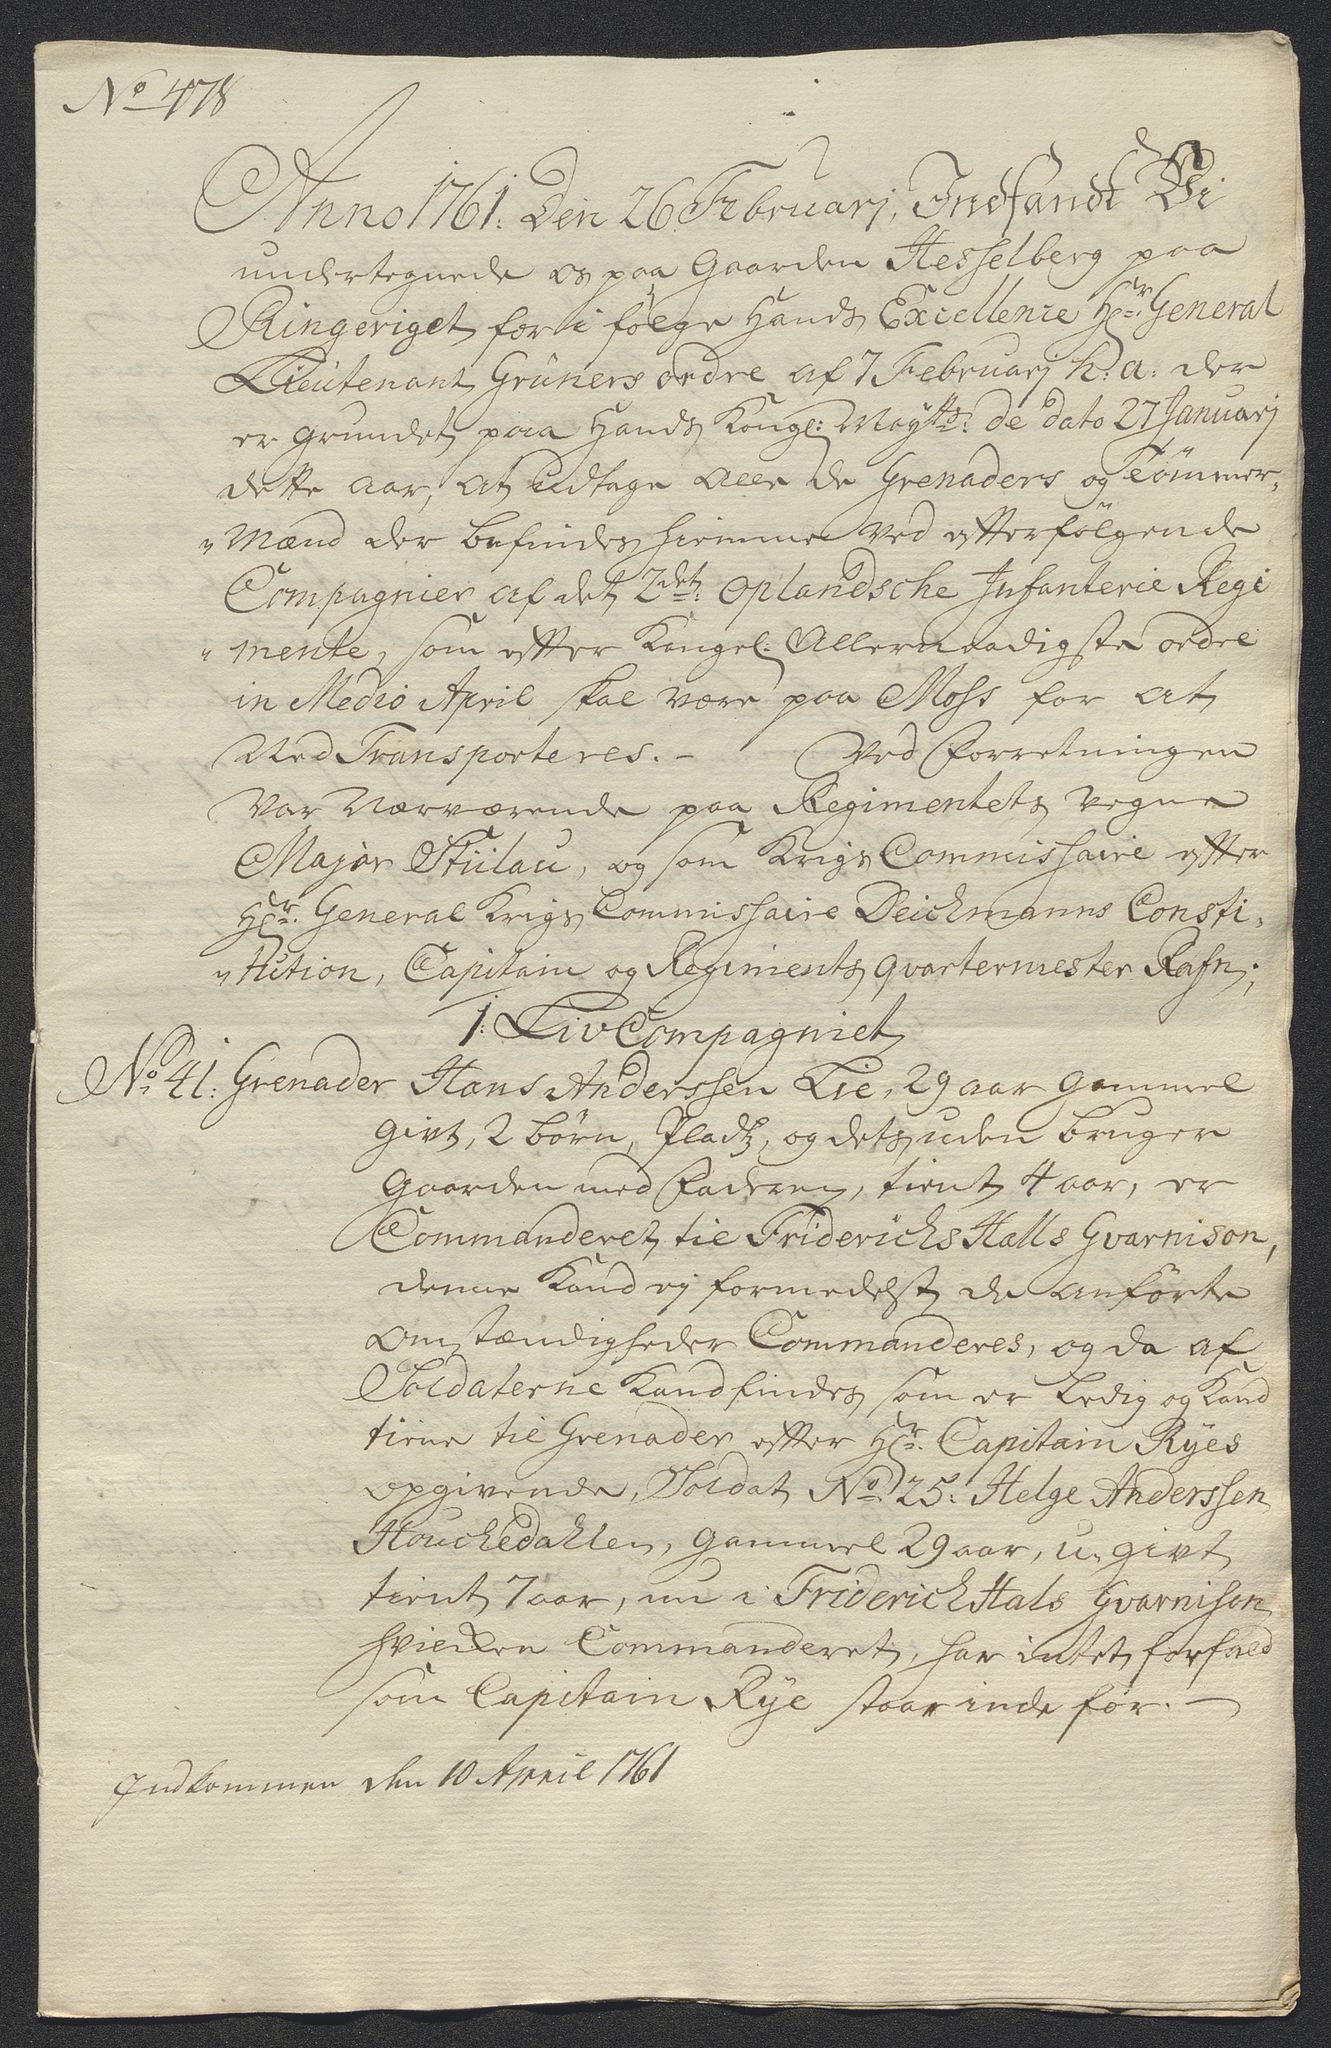 No 478
Anno 1761. Den 26 Februarj, Indfandt Vi
undertegnede os paa Gaarden Hesselberg paa
Ringeriget for i følge Hands Excellence Hr: General
Lieutenant Grüners ordre af 7 Februarj h: a: der
er grundet paa Hands Kongl: Mayts: de dato 27 Januarj
dette aar, at udtage alle de Grenaders og Tømmer„
„Mænd der befindes hiemme ved efterfølgende
Compagnier af det 2det: Oplandsche Infanterie Regi
„mente, som efter Kongel: Allernaadigste ordre
in Medio April skal være paa Moss for at
Ned Transporteres. – Ved Forretningen
var Nærværende paa Regimentets vegne
Major Stülau, og som Krigs Commissaire efter
Hr: General Krigs Commissaire Deichmanns Consti„
„tution, Capitain og Regiments qvartermester Rafn;
1: Liv Compagniet
No: 41: Grenader Hans Anderssen Lie, 29 aar gammel
givt, 2 børn, Pladtz, og dets uden bruger
Gaarden med Faderen, tient 4 aar, er
Commanderet til Friderichs Halls Gvarnison,
denne Kand ej formedelst de anførte
omstændigheder Commanderes, og da af
Soldaterne Kand findes som er ledig og Kand
tiene til Grenader efter Hr: Capitain Ryes
opgivende, Soldat No 25: Helge Anderssen
Houchedahlen, gammel 29 aar, u-givt
tient 7 aar, nu i Friderich Hals Gvarnison
hvilken Commanderet, har intet forfald
som Capitain Rye staar inde for. –
Indkommen den 10 April 1761